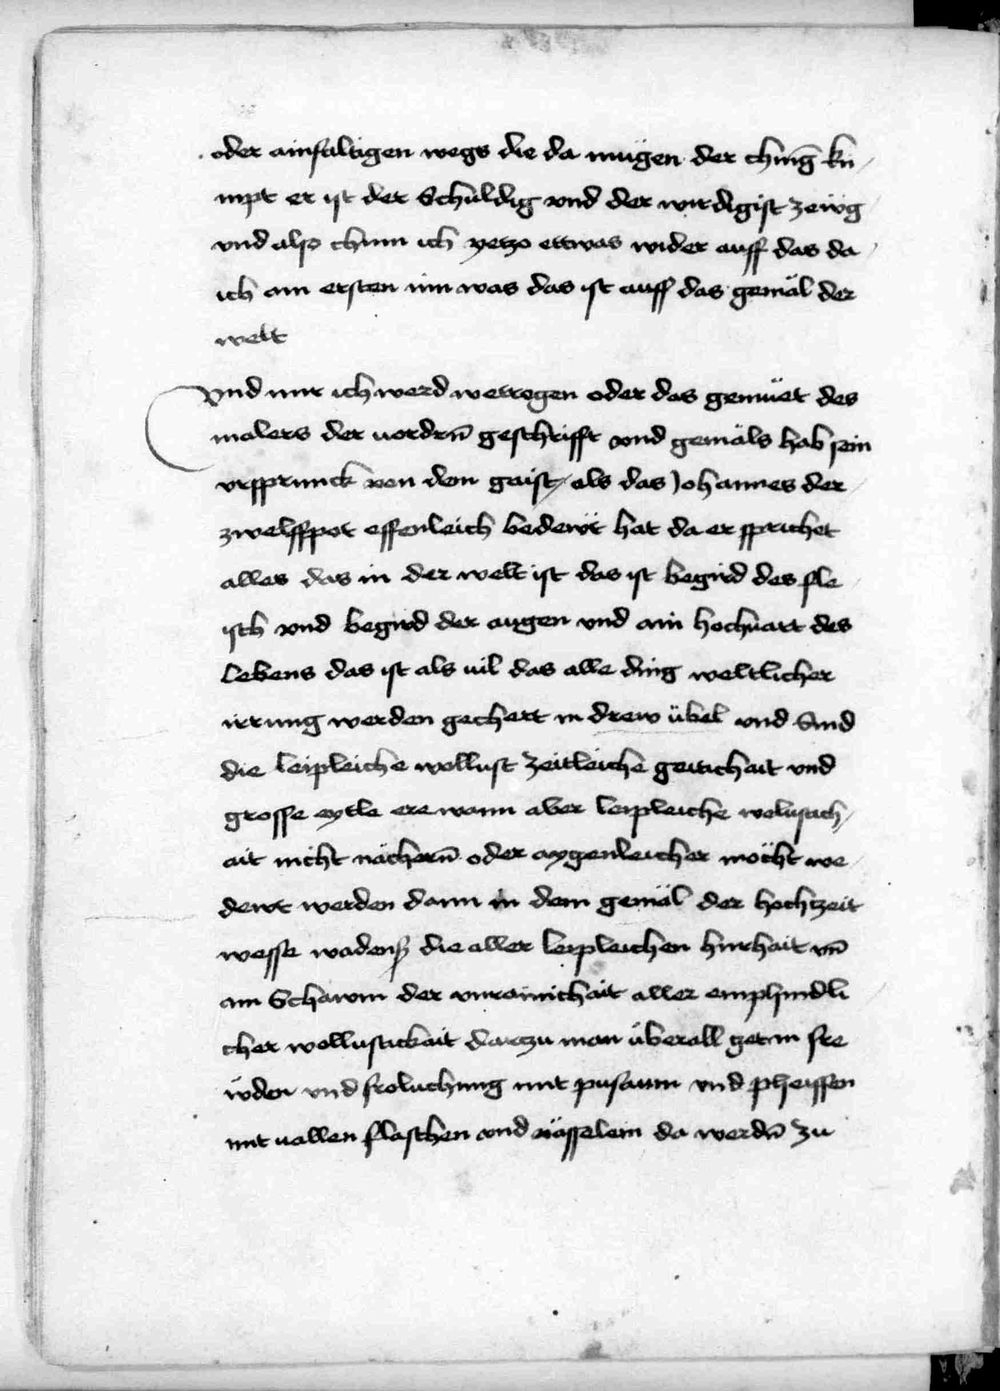 oder ainfaltigen wegs die da mugen der chung kū
mpt er ist der Schuldig vnd der wirdigist zewg
vnd also chum ich yetzo ettwas wider auff das da
ich am ersten von was das ist auff das gemäl der
welt
Vnd mir ich werd wetrogen oder das gemüet des
malers der uordrn̄ geschrifft vnd gemäls hab sein
vrsprunck von dem gaist als das Johannes der
zwelffpot offenleich bedewt hat da er sprichet
alles das in der welt ist das ist begird des fle
isch vnd begird der augen vnd ain hochuart des
lebens das ist als uil das alle ding weltlicher
irrung werden gechert in drew übel vnd Sind
die leipleiche wollust zeitleiche geitichait vnd
grosse eytle ere wann aber leipleiche wolustich
ait nicht nächern̄ oder aygenleicher möcht we
dewt werden dann in dem gemäl der hochtzeit
wesse die aller leipleichen hurhait vn̄
ain Schawm der vnrainichait aller emphindli
cher wollustickait darzu man überall get in fre
wden vnd froluchung mit pusaun vnd pheiffen
mit uallen flaschen vnd uässelein da werdn̄ zu